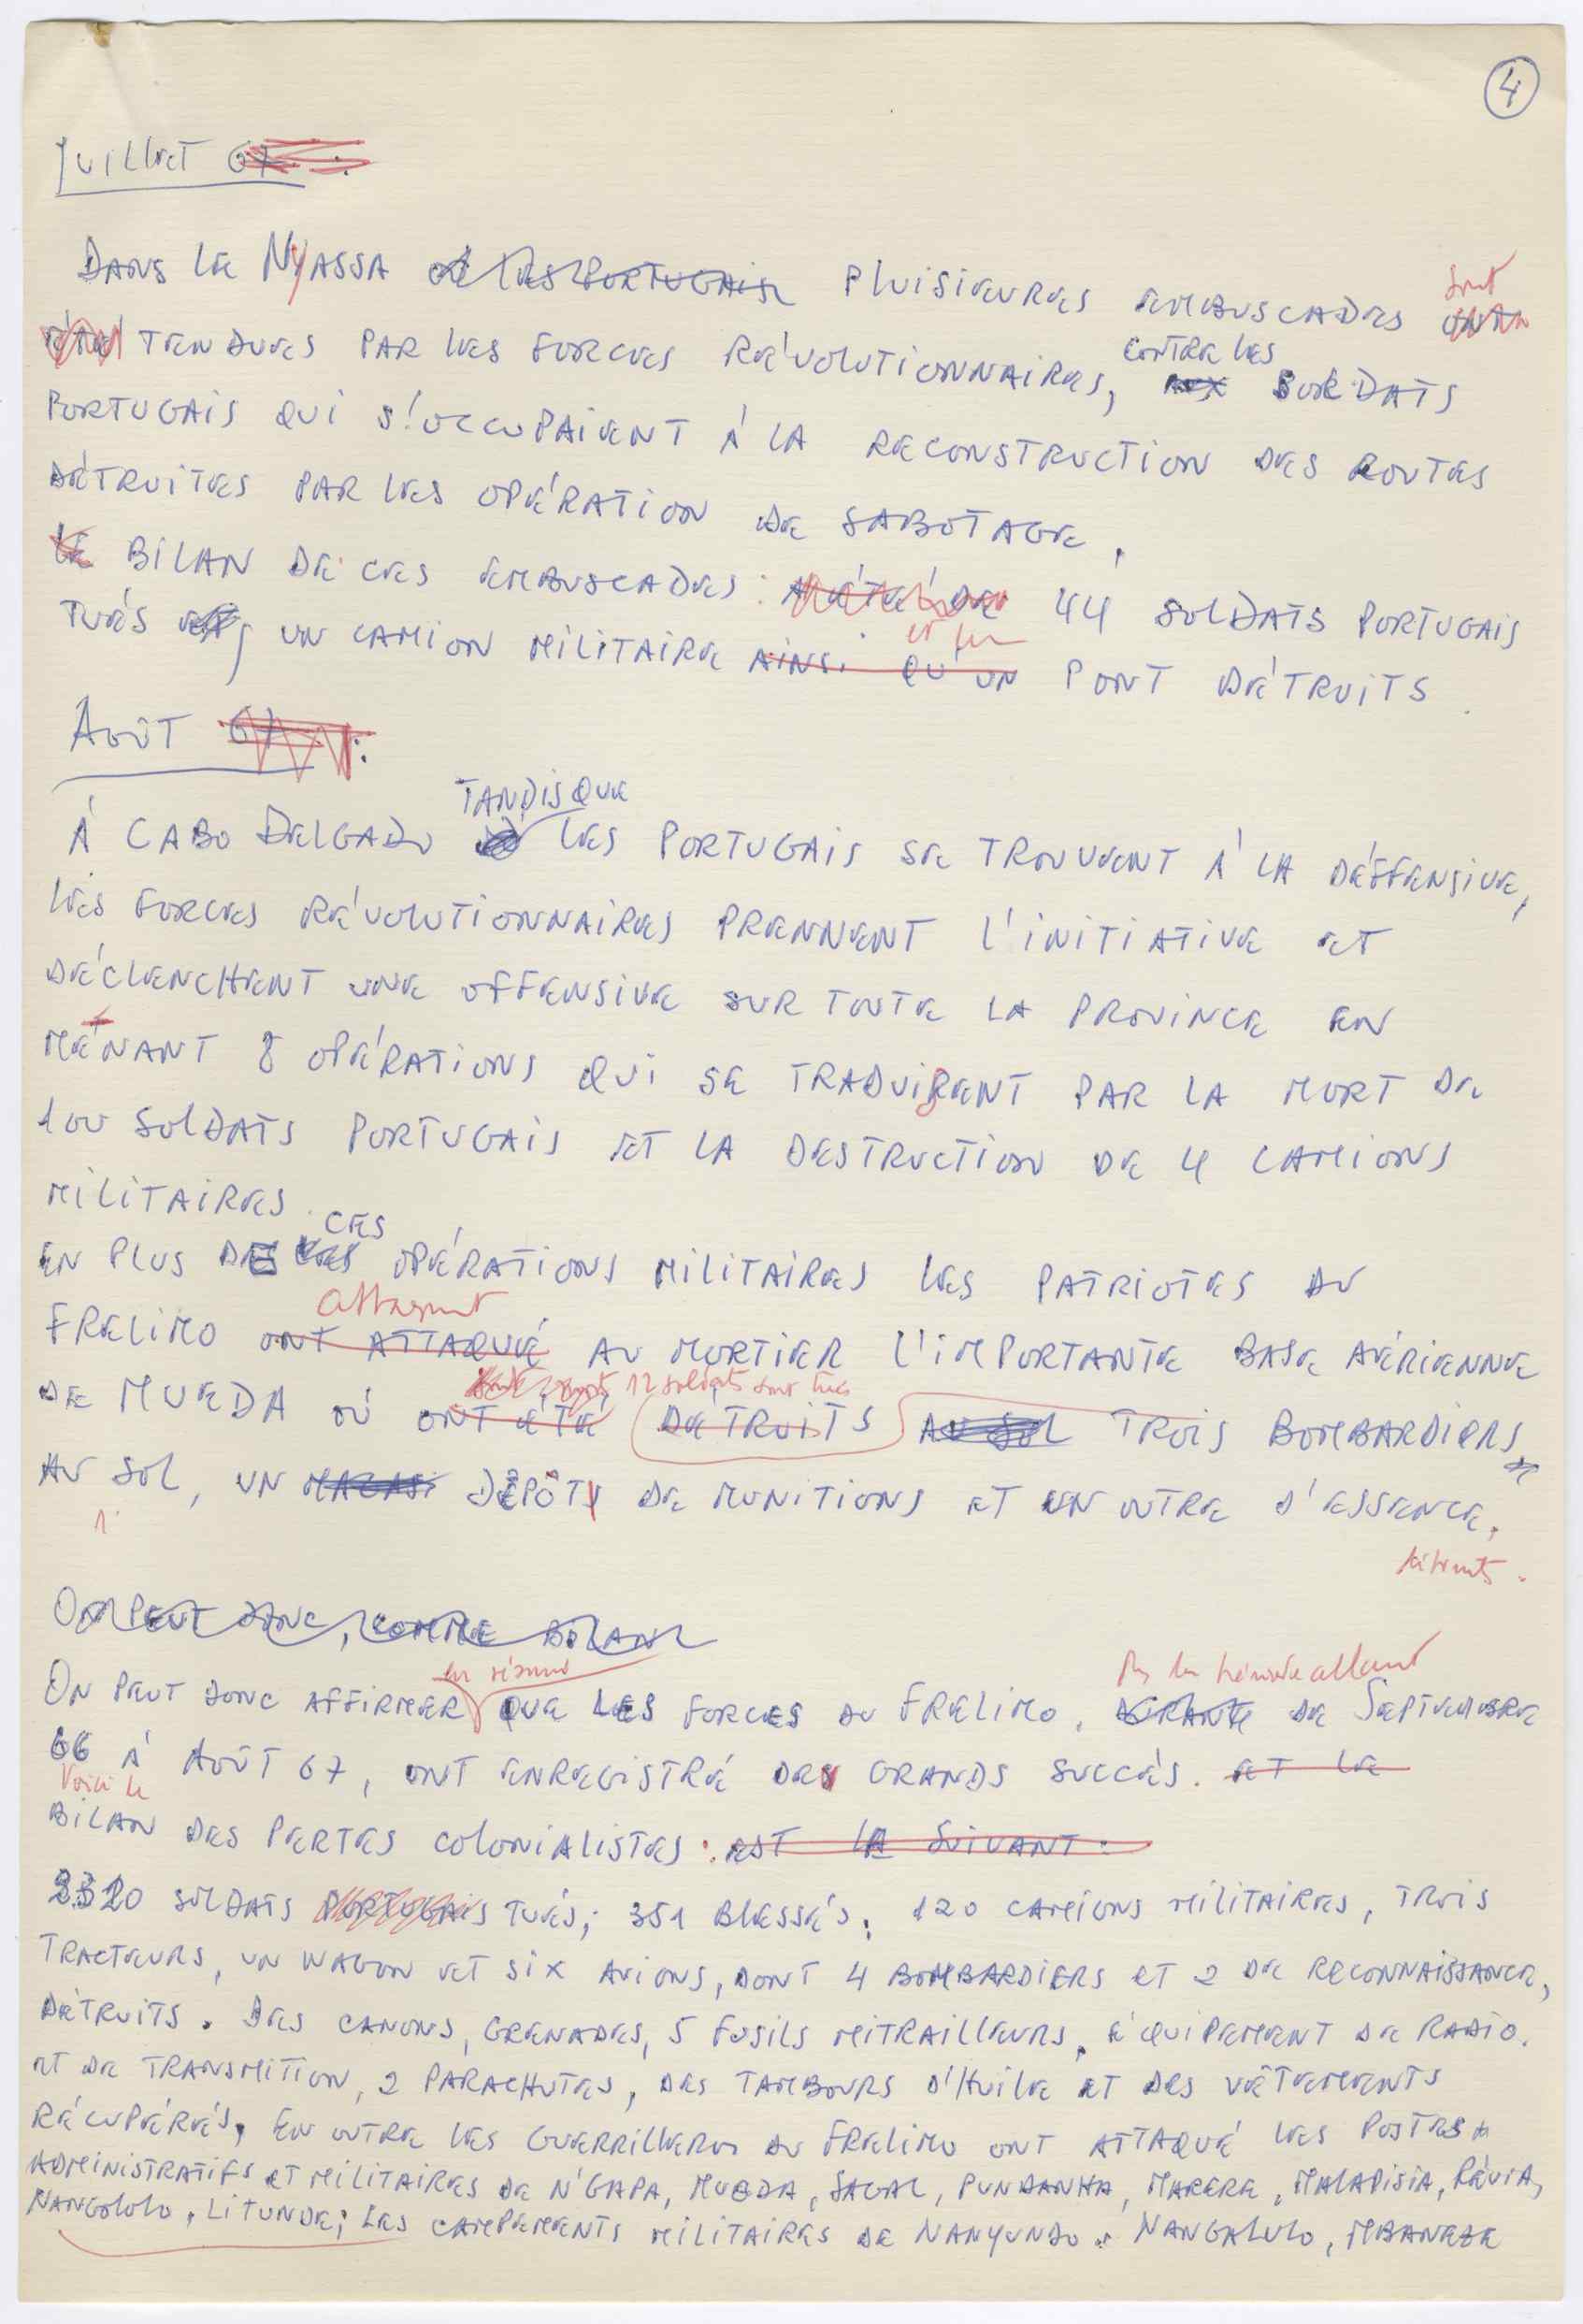 4
JUILLET 67 :
DANS LE NYASSA PLUISIEURES EMBUSCADES sont
TENDUES PAR LES FORCES RÉVOLUTIONNAIRES, CONTRE LES SOLDATS
PORTUGAIS QUI S'OCCUPAIENT À LA RECONSTRUCTION DES ROUTES
DÉTRUITES PAR LES OPÉRATION DE SABOTAGE.
LE BILAN DE CES EMBUSCADES : A ÉTÉ DE 44 SOLDATS PORTUGAIS
TUÉS ET, UN CAMION MILITAIRE AINSI QU'UN et un PONT DÉTRUITS.
AOÛT 67 :
À CABO DELGADO TANDISQUE LES PORTUGAIS SE TROUVENT À LA DÉFFENSIVE,
LES FORCES RÉVOLUTIONNAIRES PRENNENT L'INITIATIVE ET
DÉCLENCHENT UNE OFFENSIVE SUR TOUTE LA PROVINCE EN
MENANT 8 OPÉRATIONS QUI SE TRADUISENT PAR LA MORT DE
100 SOLDATS PORTUGAIS ET LA DESTRUCTION DE 4 CAMIONS
MILITAIRES.
EN PLUS DE CES OPÉRATIONS MILITAIRES LES PATRIOTES DU
FRELIMO ONT ATTAQUÉ attaquent AU MORTIER L'IMPORTANTE BASE AÉRIENNE
DE MUEDA OÙ ONT ÉTÉ 12 soldats sont tués DÉTRUITS AU SOL TROIS BOMBARDIERS
AU SOL, UN DÉPÔT DE MUNITIONS ET UN OUTRE D'ESSENCE.
détruits.
ON PEUT DONC, COMME BILAN
ON PEUT DONC AFFIRMER en résumé QUE LES FORCES DU FRELIMO, DURANT allant DE SEPTEMBRE
66 À AOÛT 67, ONT ENREGISTRÉ DE GRANDS SUCCÈS. ET LE
Voici le
BILAN DES PERTES COLONIALISTES : EST LE SUIVANT :
SOLDATS PORTUGAIS TUÉS; 351 BLESSÉS; 120 CAMIONS MILITAIRES, TROIS
TRACTEURS, UN WAGON ET SIX AVIONS, DONT 4 BOMBARDIERS ET 2 DE RECONNAISSANCE,
DÉTRUITS. DES CANONS, GRENADES, 5 FUSILS MITRAILLEURS, ÉQUIPEMENT DE RADIO.
ET DE TRANSMITION, 2 PARACHUTES, DES TAMBOURS D'HUILE ET DES VÊTEMENTS
RÉCUPÉRÉS, EN OUTRE LES GUERRILLEROS DU FRELIMO ONT ATTAQUÉ LES POSTES
ADMINISTRATIFS ET MILITAIRES DE N'GAPA, MUEDA, SAGAL, PUNDANHA, MAKERE, MALAPISIA, RÉVIA,
NANGOLOLO, LITUNDE; LES CAMPEMENTS MILITAIRES DE NANYUNDO, NANGALULO, MBANEZE